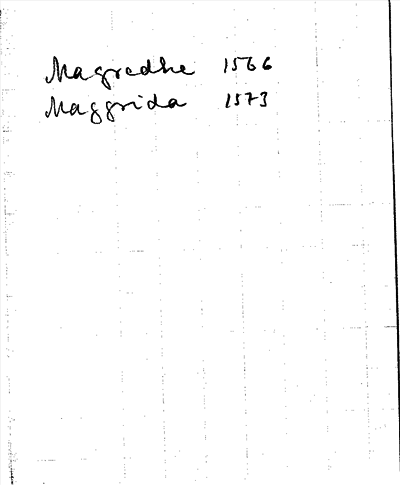 Magredhe 1566
Maggrida 1573